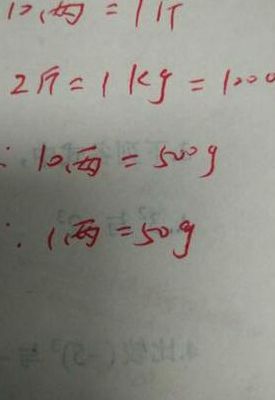 10两 = 1斤
2斤 = 1 kg = 1000
∴ 10两 = 500g
∴ 1两 = 50g